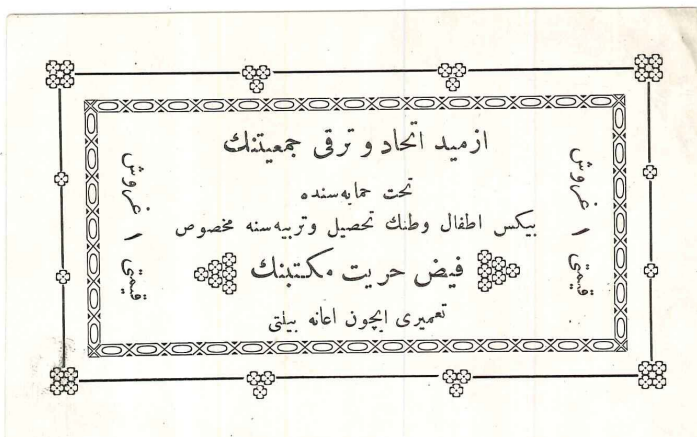 ازميد اتحاد و ترقی جمعيتنك
تحت حمايه‌سنده
بيكس اطفال وطنك تحصيل وتربيه‌سنه مخصوص
فيض حريت مكتبنك
تعميری ايچون اعانه بيلتی
قيمتی ١ غروش
قيمتی ١ غروش